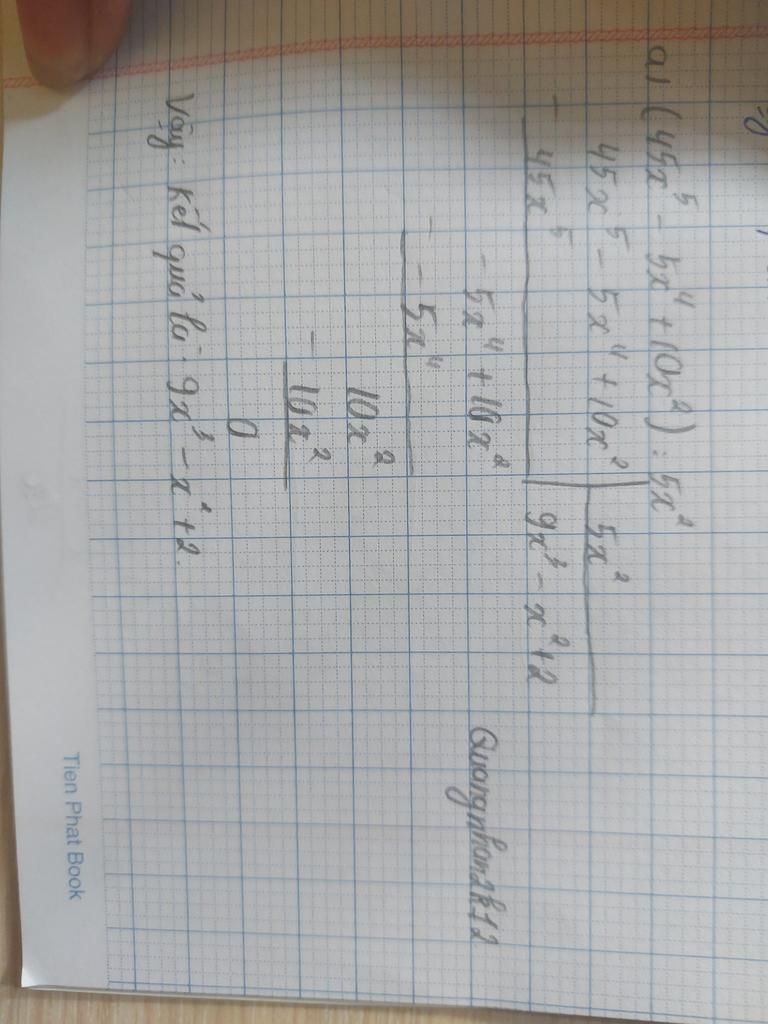 a) (45x⁵ - 5x⁴ + 10x²) : 5x²
45x⁵ - 5x⁴ + 10x² | 5x²
- 45x⁵ 9x³ - x² + 2
- 5x⁴ + 10x²
- - 5x⁴
10x²
- 10x²
0
Vậy: kết quả là: 9x³ - x² + 2.
Tien Phat Book